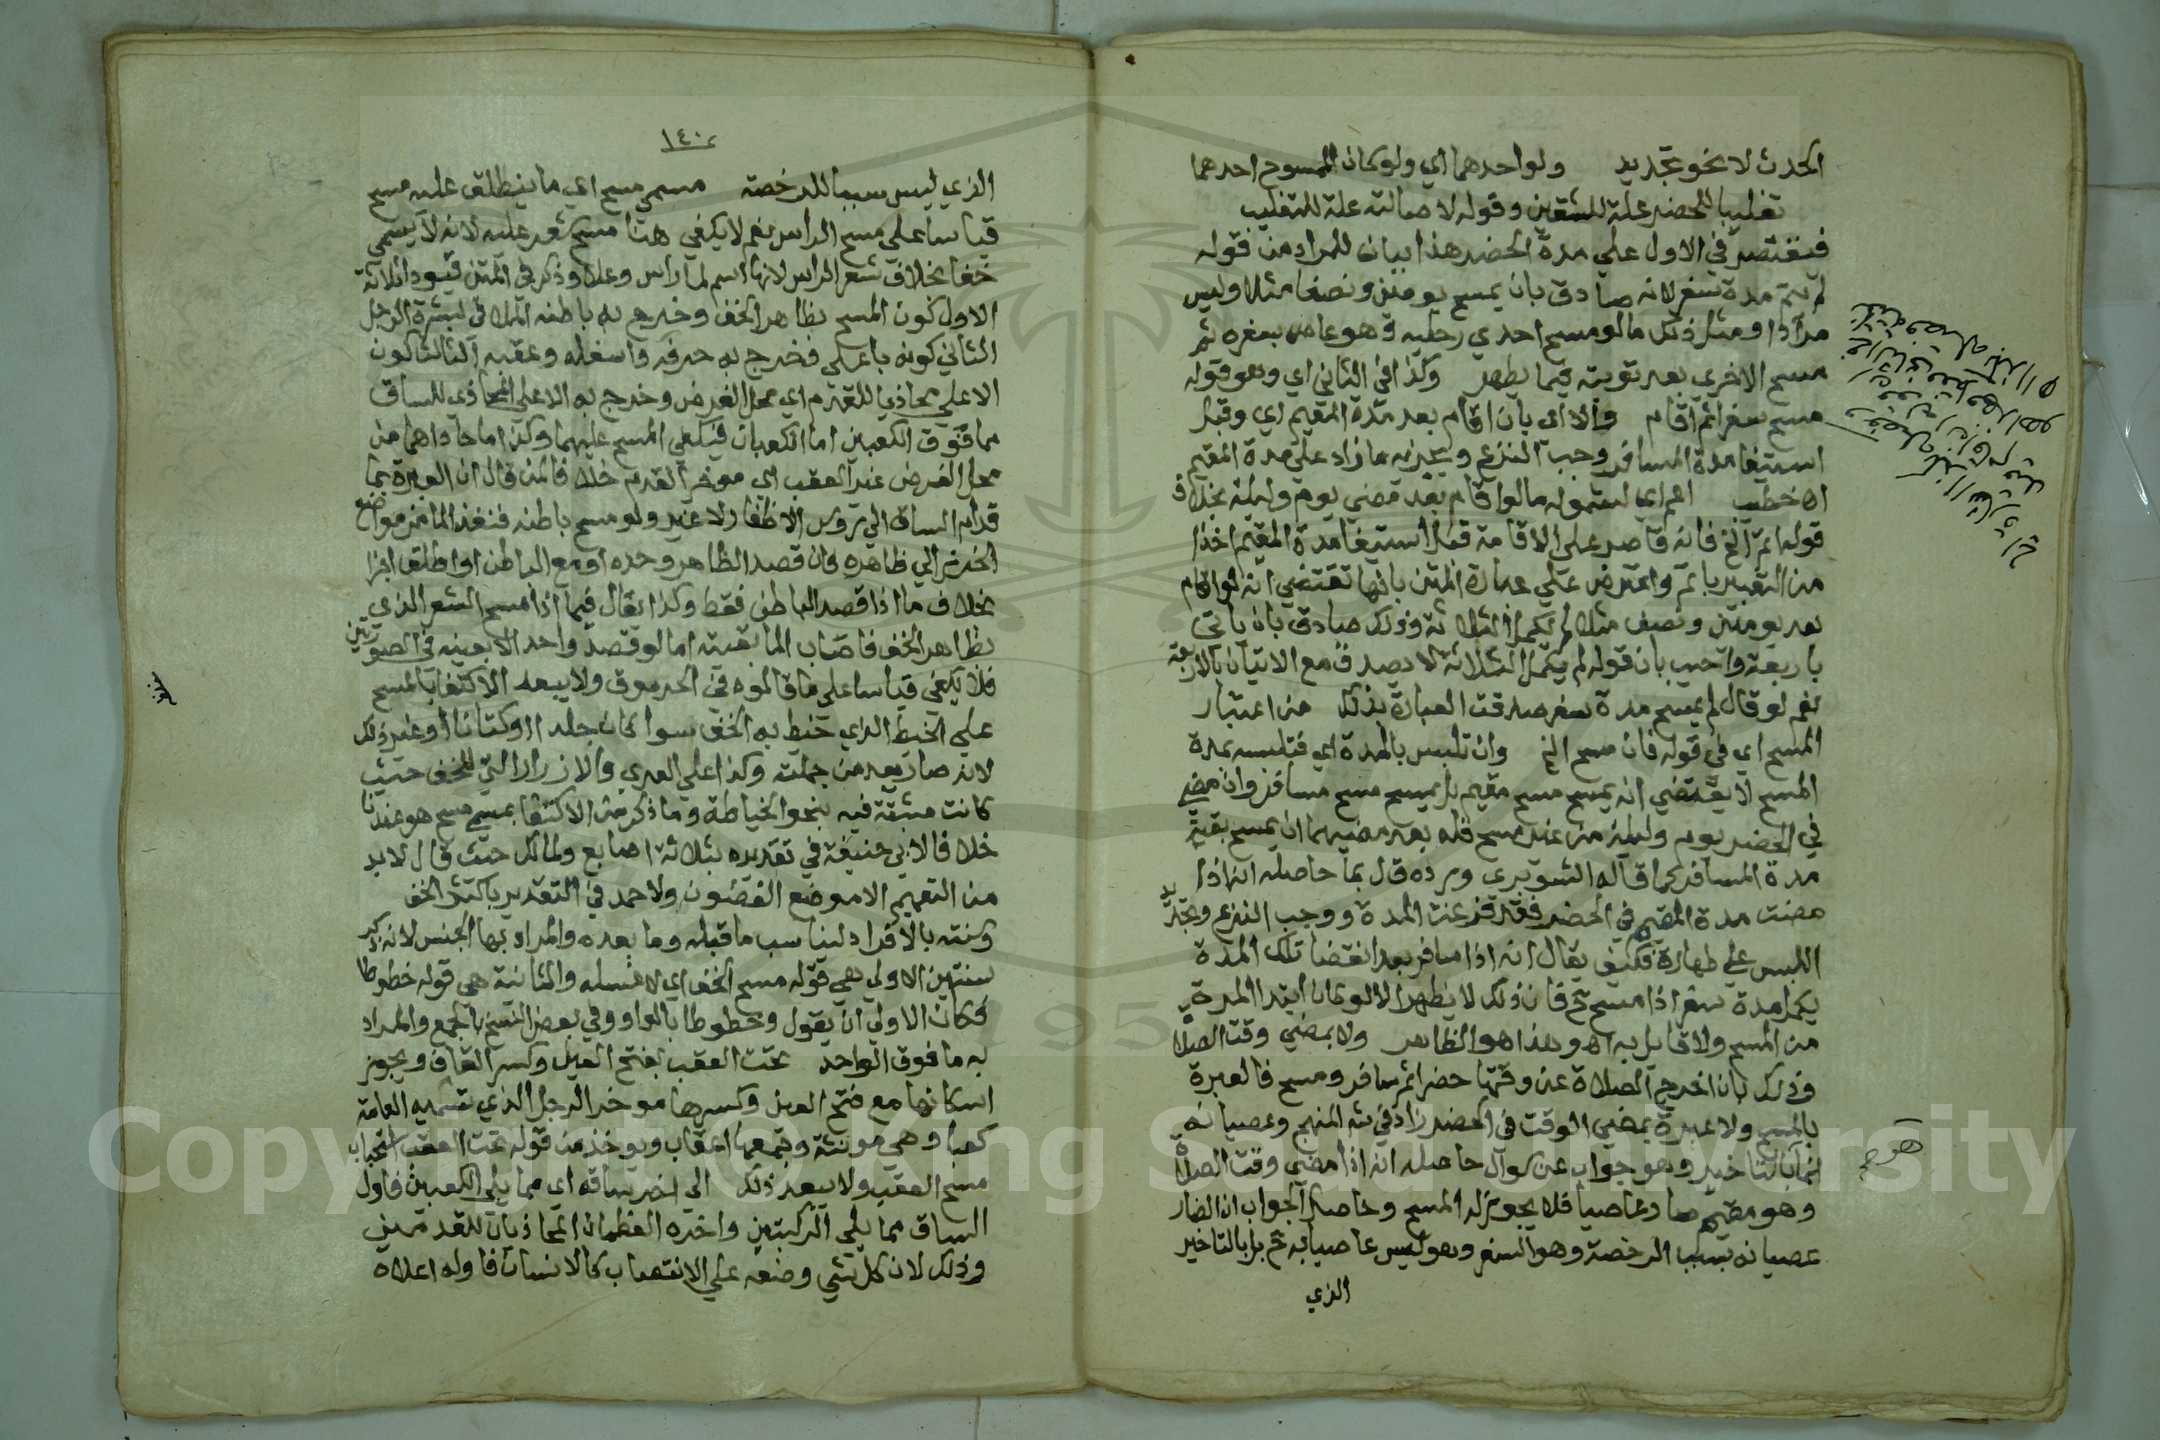 الحدث لا نحو تجديد ولو احدهما اي ولو كان الممسوح احدهما
تغليبا للحضر علة للشقين وقوله لاصالته علة للتغليب
فيقتصر في الاول علي مدة الحضر هذا بيان للمراد من قوله
لم يتم مدة سفر لانه صادق بان يمسح يومين ونصفا مثلا وليس
مرادا ومثل ذلك ما لو مسح احدي رجليه وهو عاص بسفره ثم
مسح الاخري بعد توبته فيما يظهر وكذا في الثاني اي وهو قوله
مسح سفرا ثم اقام والا اي بان اقام بعد مدة المقيم اي وقبل
استيفا مدة المسافر وجب النزع ويجزئه ما زاد علي مدة المقيم
اه خطيب اعم اي لشموله ما لو اقام بعد مضي يوم وليلة بخلاف
قوله اتم الخ فانه قاصر علي الاقامة قبل استيفا مدة المقيم اخذا
من التعبير باتم واعترض علي عبارة المتن بانها تقتضي انه لو اقام
بعد يومين ونصف مثلا لم يكمل الثلاثة وذلك صادق بان ياتي
باربعة واجيب بان قوله لم يكمل الثلاثة لا يصدق مع الاتيان بالاربعة
نعم لو قال لم يمسح مدة سفر صدقت العبارة بذلك من اعتبار
المسح اي في قوله فان مسح الخ وان تلبس بالمدة اي فتلبسه بمدة
المسح لا يقتضي انه يمسح مسح مقيم بل يمسح مسح مسافر وان مضي
في الحضر يوم وليلة من غير مسح فله بعد مضيهما ان يمسح بقية
مدة المسافر كما قاله الشوبري ورده قال بما حاصله انه اذا
مضت مدة المقيم في الحضر فقد فرغت المدة ووجب النزع وتجديد
اللبس علي طهارة فكيف يقال انه اذا سافر بعد انقضا تلك المدة
يكمل مدة سفر اذا مسح ثم فان ذلك لا يظهر الا لو كان ابتدا المدة
من المسح ولا قايل به اه وهذا هو الظاهر ولا بمضي وقت الصلاة
وذلك بان اخرج الصلاة عن وقتها حضرا ثم سافر ومسح فالعبرة
بالمسح ولا عبرة بمضي الوقت في الحضر زاد في شه المنهج وعصيانه
انما بالتاخير وهو جواب عن سوال حاصله انه اذا مضي وقت الصلاة
وهو مقيم صار عاصيا فلا يجوز له المسح وحاصل الجواب ان الضار
عصيانه بسبب الرخصة وهو السفر وهو ليس عاصيا به ثم بل بالتاخير
الذي
١٤٠
الذي ليس سببا للرخصة مسمي مسح اي ما ينطلق عليه مسح
قياسا علي مسح الراس نعم لا يكفي هنا مسح شعر عليه لانه لا يسمي
خفا بخلاف شعر الراس لانها اسم لما راس وعلا وذكر في المتن قيودا ثلاثة
الاول كون المسح بظاهر الخف وخرج به باطنه الملاقي لبشرة الرجل
الثاني كونه باعلي فخرج به حرفه واسفله وعقبه الثالث كون
الاعلي محاذيا للقدم اي محل الفرض وخرج به الاعلي المحاذي للساق
مما فوق الكعبين اما الكعبان فيكفي المسح عليهما وكذا ما حاذاهما من
محل الفرض غير العقب اي موخر القدم خلافا لمن قال ان العبرة بما
قدام الساق الي روس الاظفار لا غير ولو مسح باطنه فنفذ الما من مواضع
الخرز الي ظاهره فان قصد الظاهر وحده او مع الباطن او اطلق اجزا
بخلاف ما اذا قصد الباطن فقط وكذا يقال فيما اذا مسح الشعر الذي
بظاهر الخف فاصاب الما بقيته اما لو قصد واحدا لا بعينه في الصورتين
فلا يكفي قياسا علي ما قالوه في الجرموق ولا يبعد الاكتفا بالمسح
علي الخيط الذي خيط به الخف سوا كان جلدا او كتانا او غير ذلك
لانه صار يعد من جملته وكذا علي العري والازرار التي للخف حيث
كانت مثبتة فيه بنحو الخياطة وما ذكر من الاكتفا بمسمي مسح هو عندنا
خلافا لابي حنيفة في تقديره بثلاثة اصابع ولمالك حيث قال لا بد
من التعميم الا موضع الغضون ولاحمد في التقدير باكثر الخف
وسنته بالافراد ليناسب ما قبله وما بعده والمراد بها الجنس لانه ذكر
سنتين الاولي هي قوله مسح الخف اي لا غسله والثانية هي قوله خطوطا
فكان الاولي ان يقول وخطوطا بالواو وفي بعض النسخ بالجمع والمراد
به ما فوق الواحد تحت العقب بفتح العين وكسر القاف ويجوز
اسكانها مع فتح العين وكسرها موخر الرجل الذي تسميه العامة
كعبا وهي مونثة وجمعها اعقاب ويوخذ من قوله تحت العقب استحباب
مسح العقب ولا يبعد ذلك الي اخر ساقه اي مما يلي الكعبين فاول
الساق مما يلي الركبتين واخره العظمان المحاذيان للقدمين
وذلك لان كل شي وضعه علي الانتصاب كالانسان فاوله اعلاه